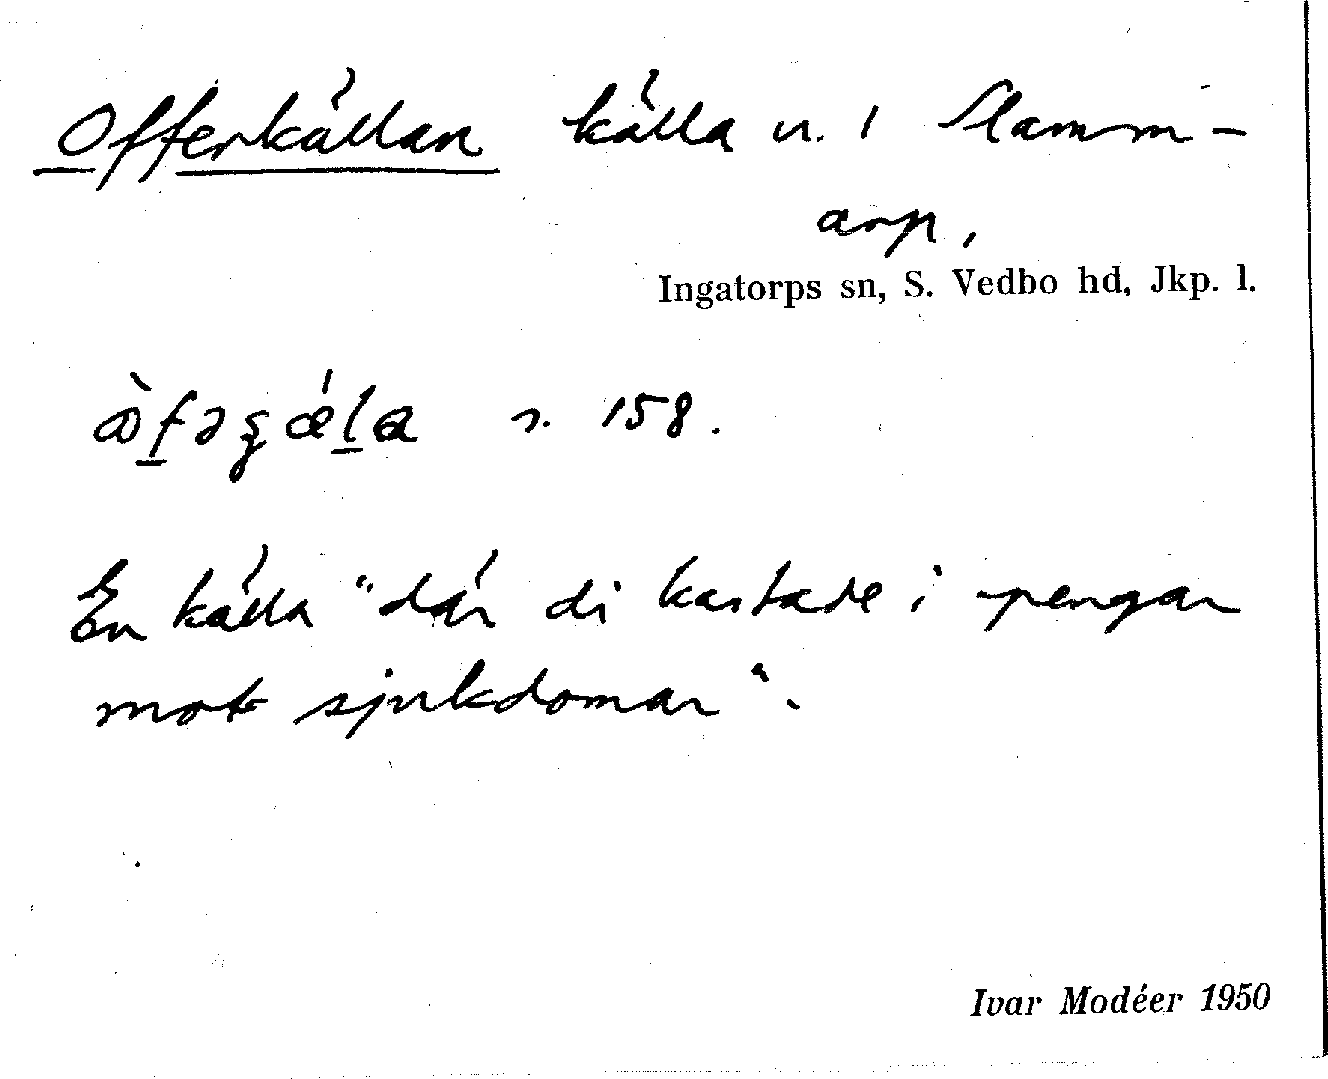 Offerkällan källa n. 1 Slamm-
arp,
Ingatorps sn, S. Vedbo hd, Jkp. l.
s. 158.
En källa "där di kastade i pengar
mot sjukdomar".
Ivar Modéer 1950